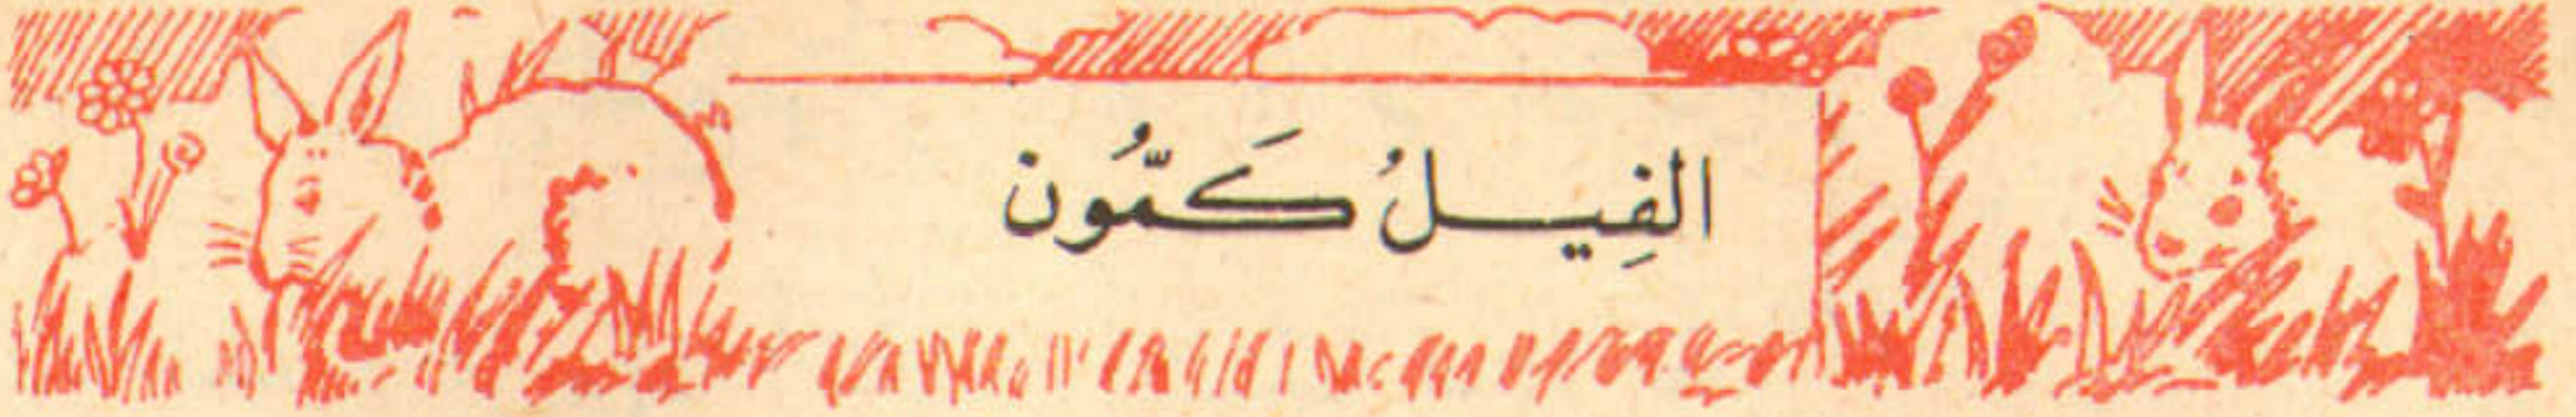 الفِيلُ كَمُّون